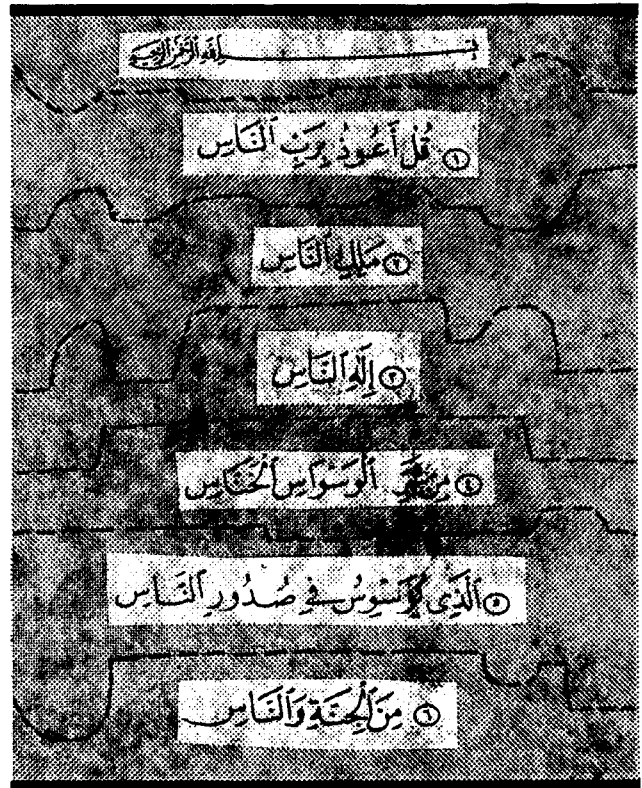 بِسْمِ ٱللَّهِ ٱلرَّحْمَٰنِ ٱلرَّحِيمِ
١ قُلْ أَعُوذُ بِرَبِّ ٱلنَّاسِ
٢ مَلِكِ ٱلنَّاسِ
٣ إِلَٰهِ ٱلنَّاسِ
٤ مِن شَرِّ ٱلْوَسْوَاسِ ٱلْخَنَّاسِ
٥ ٱلَّذِى يُوَسْوِسُ فِى صُدُورِ ٱلنَّاسِ
٦ مِنَ ٱلْجِنَّةِ وَٱلنَّاسِ